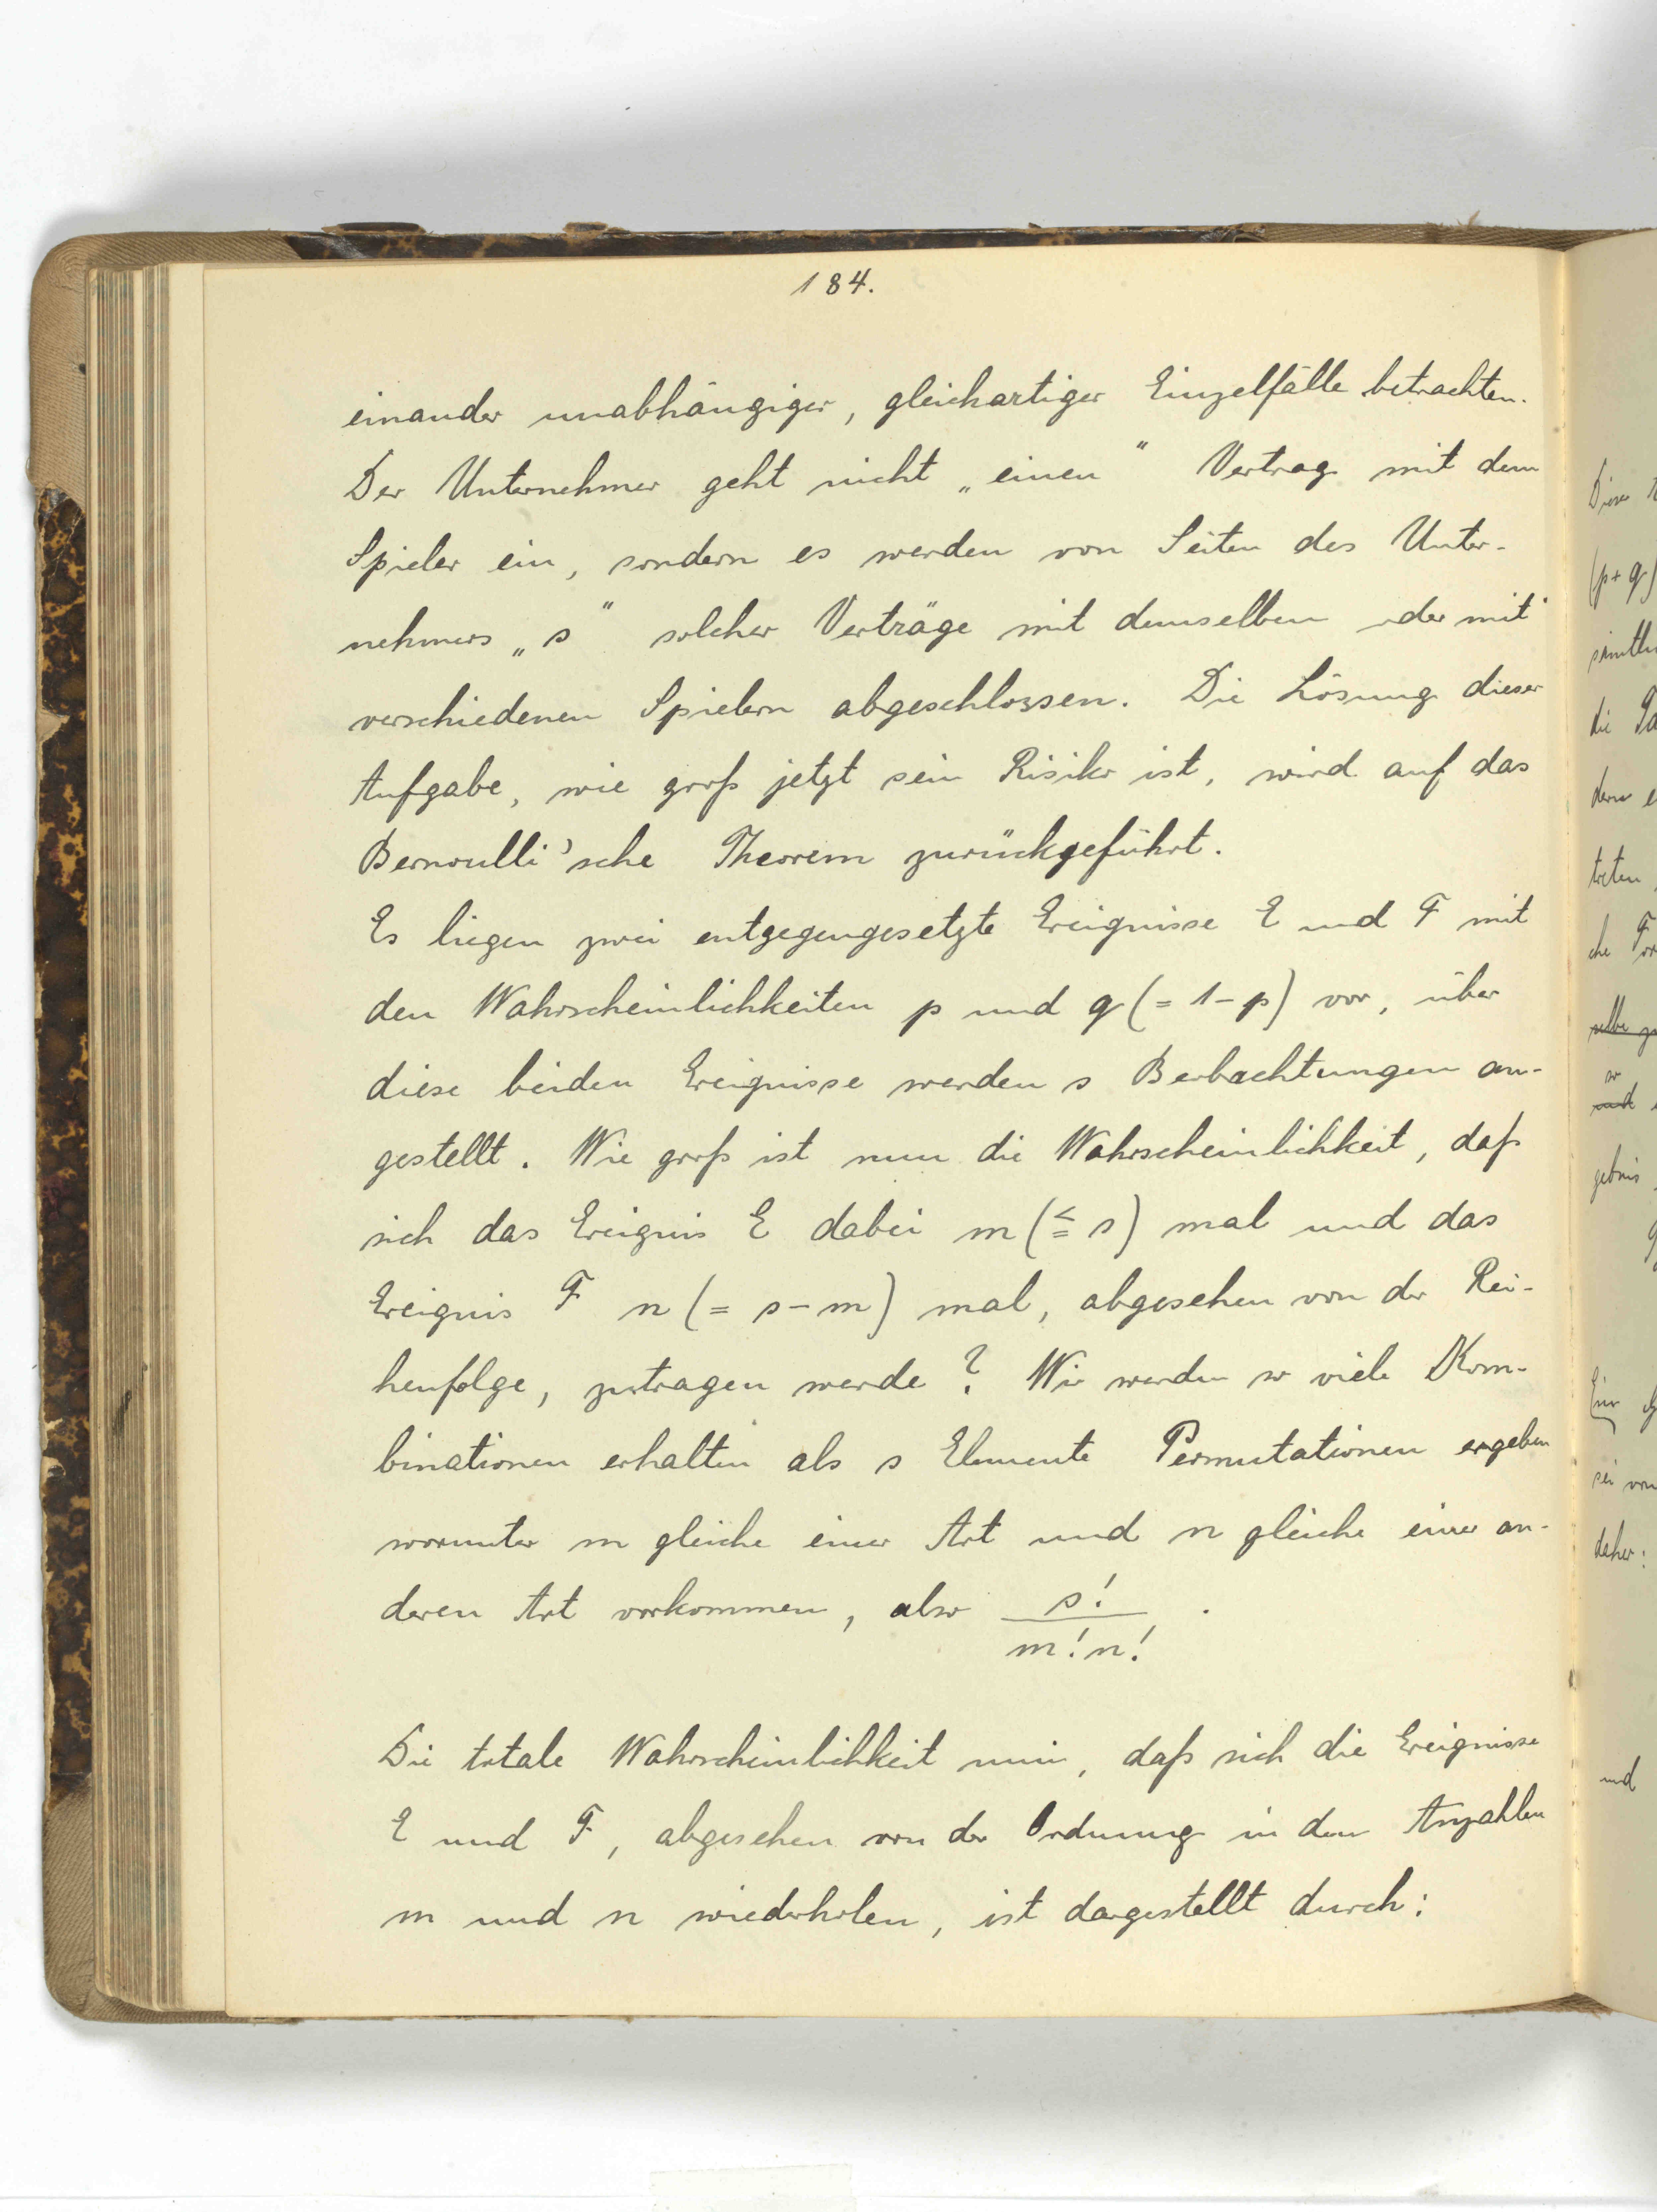 184.
einander unabhängiger, gleichartiger Einzelfälle betrachten.
Der Unternehmer geht nicht „einen“ Vertrag mit dem
Spieler ein, sondern es werden von Seiten des Unter-
nehmers „s“ solcher Verträge mit demselben oder mit
verschiedenen Spielern abgeschlossen. Die Lösung dieser
Aufgabe, wie groß jetzt sein Risiko ist, wird auf das
Bernoulli'sche Theorem zurückgeführt.
Es liegen zwei entgegengesetzte Ereignisse E und F mit
den Wahrscheinlichkeiten p und q (= 1-p) vor, über
diese beiden Ereignisse werden s Beobachtungen an-
gestellt. Wie groß ist nun die Wahrscheinlichkeit, daß
sich das Ereignis E dabei m (≦ s) mal und das
Ereignis F n (= s-m) mal, abgesehen von der Rei-
henfolge, zutragen werde? Wir werden so viele Kom-
binationen erhalten als s Elemente Permutationen ergeben
worunter m gleiche einer Art und n gleiche einer an-
deren Art vorkommen, also s! / m! n! .
Die totale Wahrscheinlichkeit nun, daß sich die Ereignisse
E und F, abgesehen von der Ordnung in den Anzahlen
m und n wiederholen, ist dargestellt durch:
(p+q)
die
treten
che
und
daher:
und